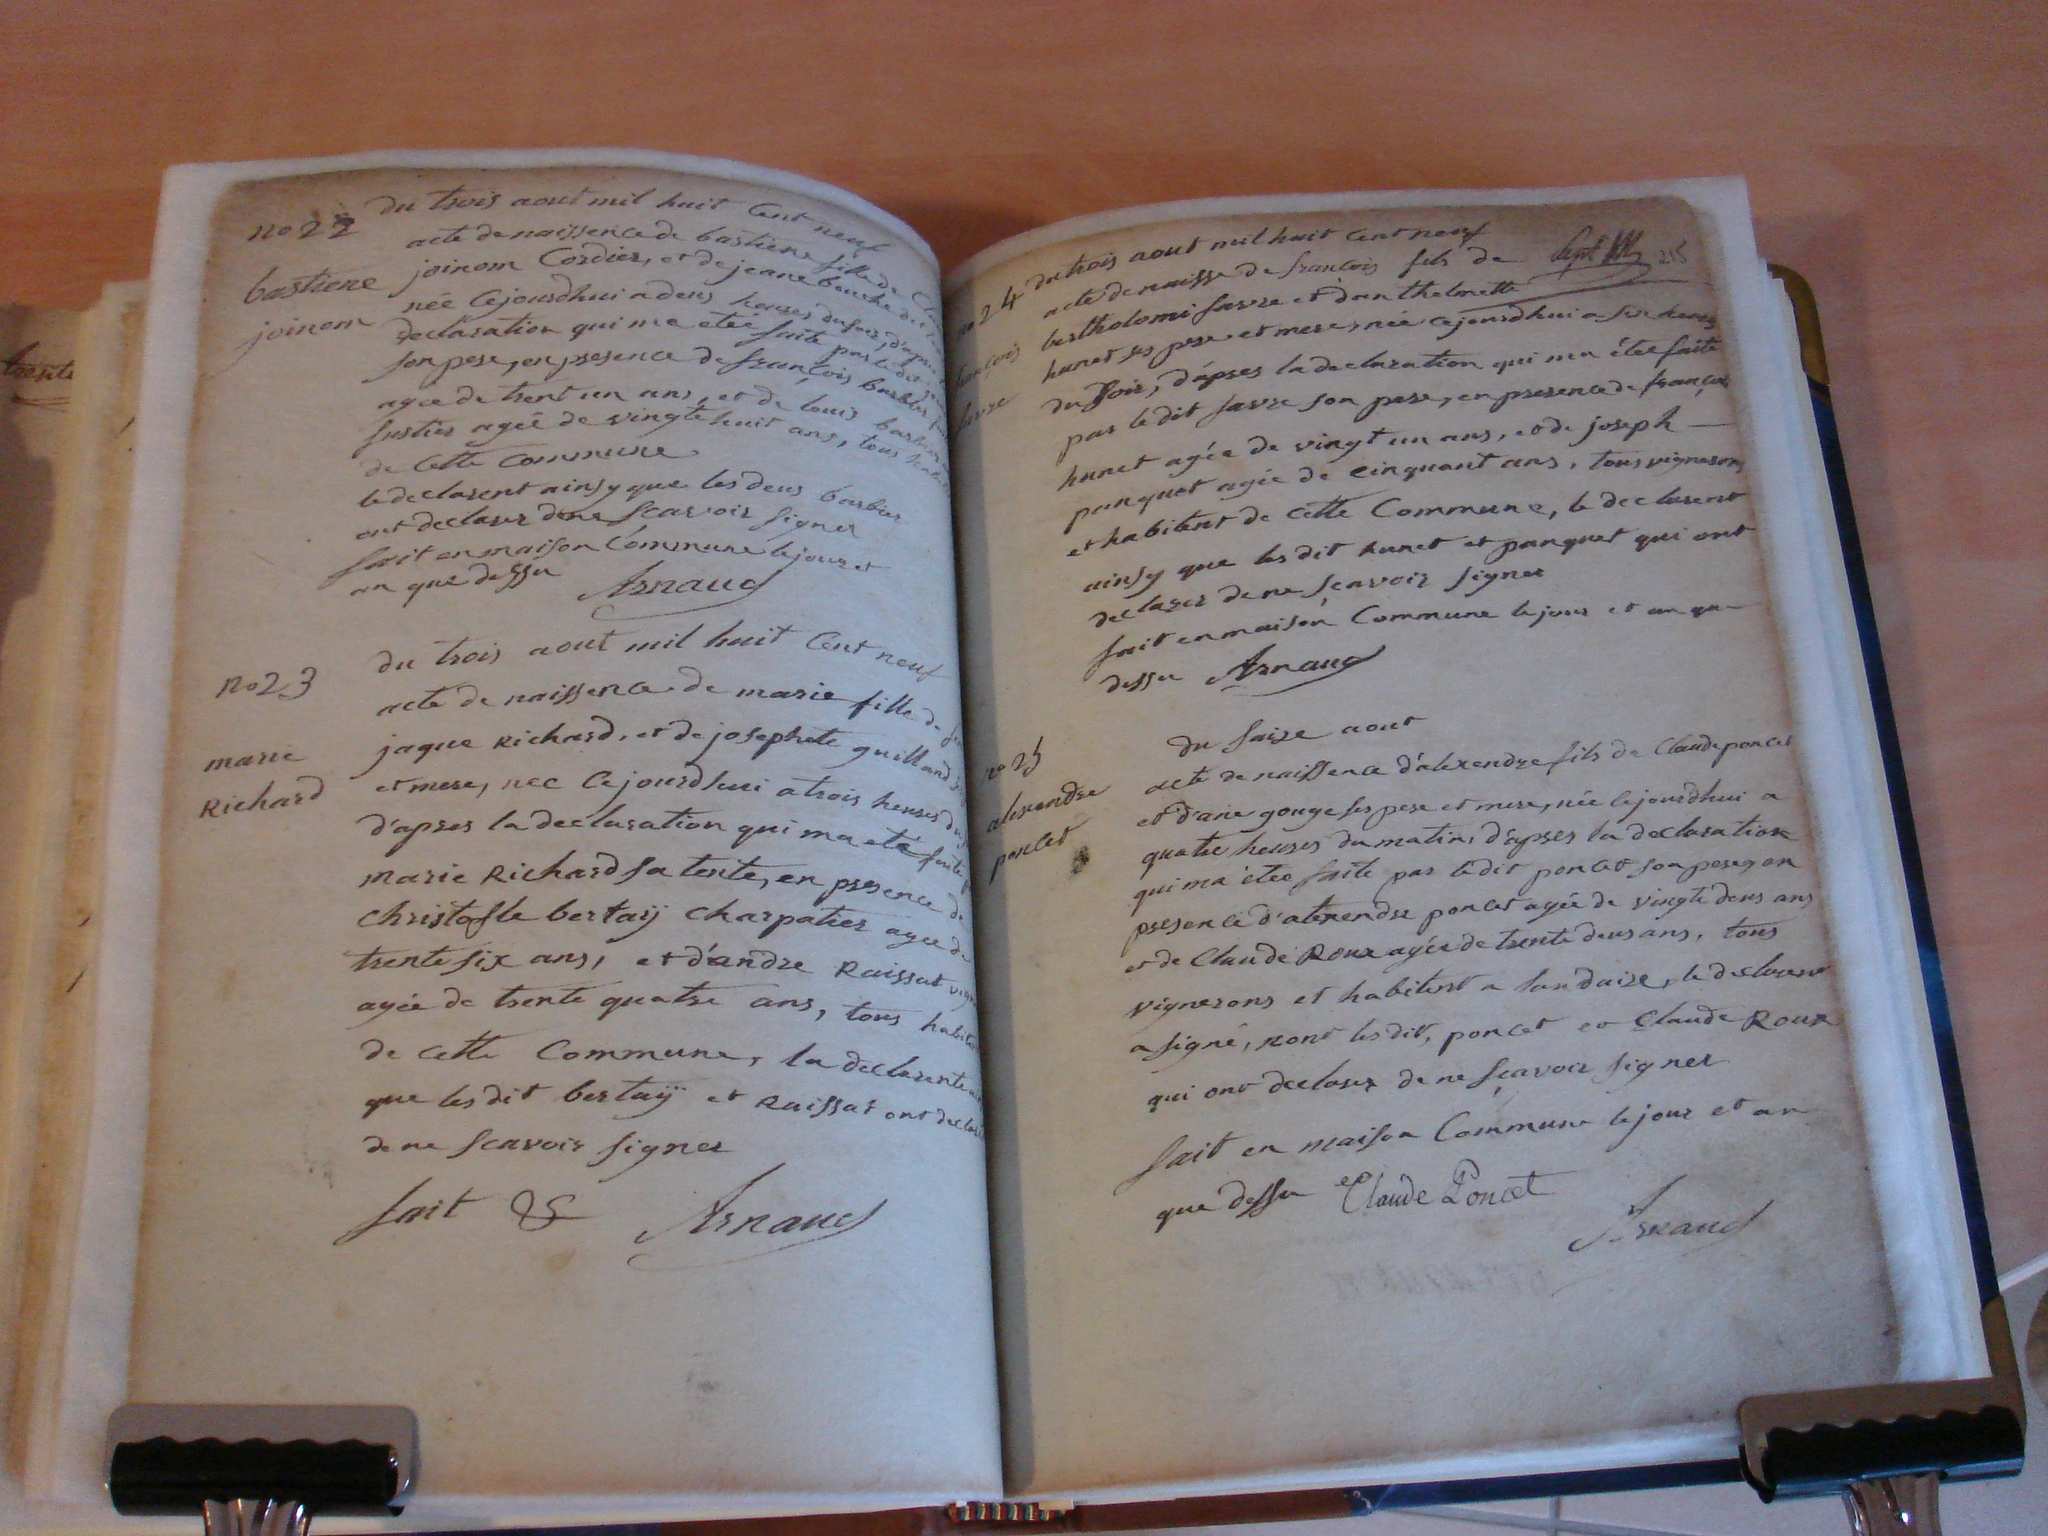 no 22
bastiene
joinom
du trois aout mil huit Cent neuf
acte de naissence de bastiene fille de
joinom Cordier, et de jeane
née Cejourdhui a deus heures du soir, d'apres
declaration qui ma etée faite par le dit
son pere, en presence de françois barbier
agee de trent un ans, et de louis barbier
agée de vingte huit ans, tous
de Cette Commune
le declarent ainsy que les deus barbier
ont declarer de ne scavoir signer
fait en maison Commune le jour et
an que dessu Arnaud
no 23
marie
Richard
du trois aout mil huit Cent neuf
acte de naissence de marie fille de
jaque Richard, et de josephete guilland
et mere, nee Cejourdhui a trois heures du
d'apres la declaration qui ma eté faite
marie Richard sa tente, en presence de
christofle bertaÿ charpatier agee de
trente six ans, et d'andre Raissat
agée de trente quatre ans, tous
de Cette Commune, la declarente
que les dit bertaÿ et Raissat ont
de ne scavoir signer
fait & Arnaud
215
no 24
françois
favre
du trois aout mil huit Cent neuf
acte de naisse de françois fils de
bertholomi favre et d'anthelmette
hunet ses pere et mere, née Cejourdhui a six heures
du soir, d'apres la declaration qui ma étée faite
par le dit favre son pere, en presence de françois
hunet agée de vingt un ans, et de joseph
panquet agée de cinquant ans, tous vignerons
et habitent de Cette Commune, le declarent
ainsy que les dit hunet et panquet qui ont
declarer de ne scavoir signer
fait en maison Commune le jour et an que
dessu Arnaud
no 25
alexandre
poncet
du saize aout
acte de naissence d'alexendre fils de Claude poncet
et d'ane gouge ses pere et mere, née Cejourdhui a
quatre heures du matin, d'apres la declaration
qui ma étée faite par le dit poncet son pere, en
presence d'alexendre poncet agée de vingte deus ans
et de Claude Roux agée de trente deus ans, tous
vignerons et habitent a landaize, le declarent
a signé, nont les dit, poncet et Claude Roux
qui ont declarer de ne scavoir signer
fait en maison Commune le jour et an
que dessu Claude Poncet
Arnaud